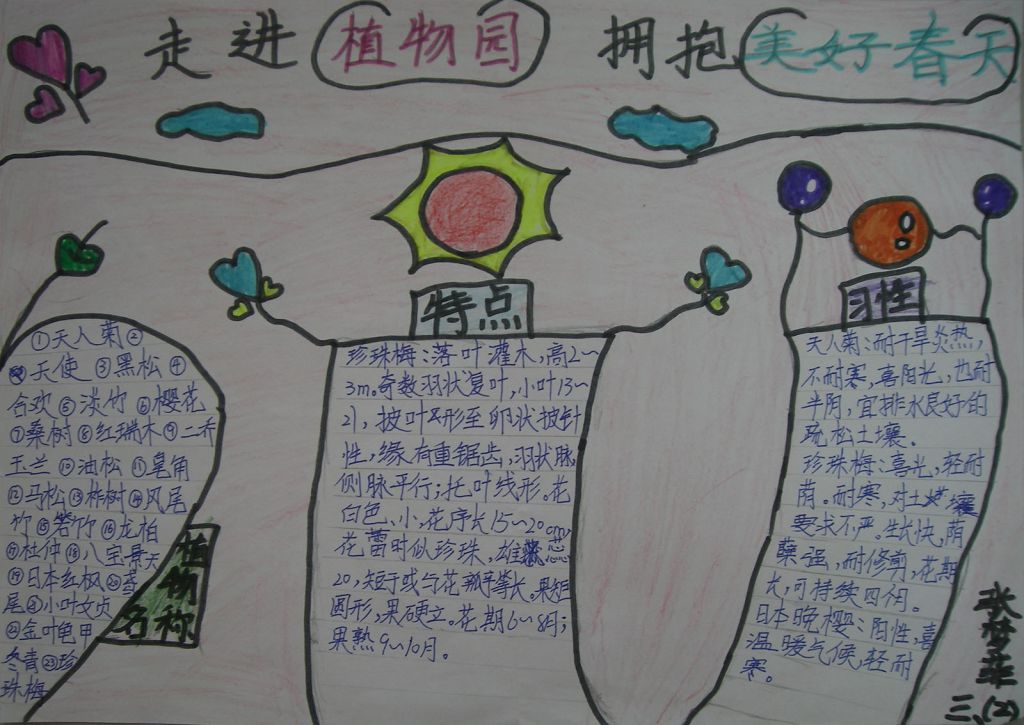 走进植物园 拥抱美好春天
①天人菊②
天使③黑松④
合欢⑤淡竹⑥樱花
⑦桑树⑧红瑞木⑨二乔
玉兰⑩油松⑪皂角
⑫马松⑬柞树⑭凤尾
竹⑮箬竹⑯龙柏
⑰杜仲⑱八宝景天
⑲日本红枫⑳鸢
尾㉑小叶女贞
㉒金叶龟甲
冬青㉓珍
珠梅
植物
名称
特点
珍珠梅:落叶灌木,高2~
3m。奇数羽状复叶,小叶13~
21,披叶形至卵状披针
性,缘有重锯齿,羽状脉,
侧脉平行;托叶线形。花
白色、小,花序长15~20cm,
花蕾时似珍珠,雄蕊
20,短于或与花瓣等长。果矩
圆形,果硬立。花期6~8月;
果熟9~10月。
习性
天人菊:耐干旱炎热,
不耐寒,喜阳光,也耐
半阴,宜排水良好的
疏松土壤。
珍珠梅:喜光,轻耐
荫。耐寒,对土壤
要求不严。生长快,荫
蘖强,耐修剪,花期
长,可持续四个月。
日本晚樱:阳性,喜
温暖气候,轻耐
寒。
张梦菲
三、(2)